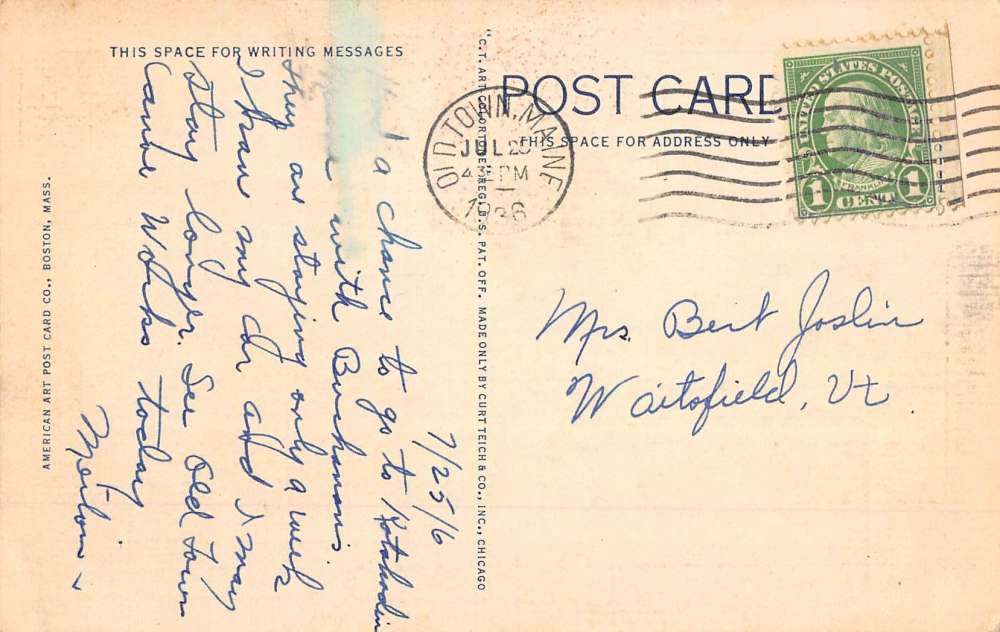 THIS SPACE FOR WRITING MESSAGES
POST CARD
THIS SPACE FOR ADDRESS ONLY
OLD TOWN, MAINE
JUL 25
4 PM
1936
UNITED STATES POSTAGE
FRANKLIN
1 CENT 1
7/25/6
a chance to go to Katahdin
with Buchanans
They are staying only a week
I have my car and I may
stay longer. See Old Town
Canoe Works today
Mrs. Bert Joslin
Waitsfield, Vt
AMERICAN ART POST CARD CO., BOSTON, MASS.
"C.T. ART-COLORTONE" REG. U.S. PAT. OFF. MADE ONLY BY CURT TEICH & CO., INC., CHICAGO